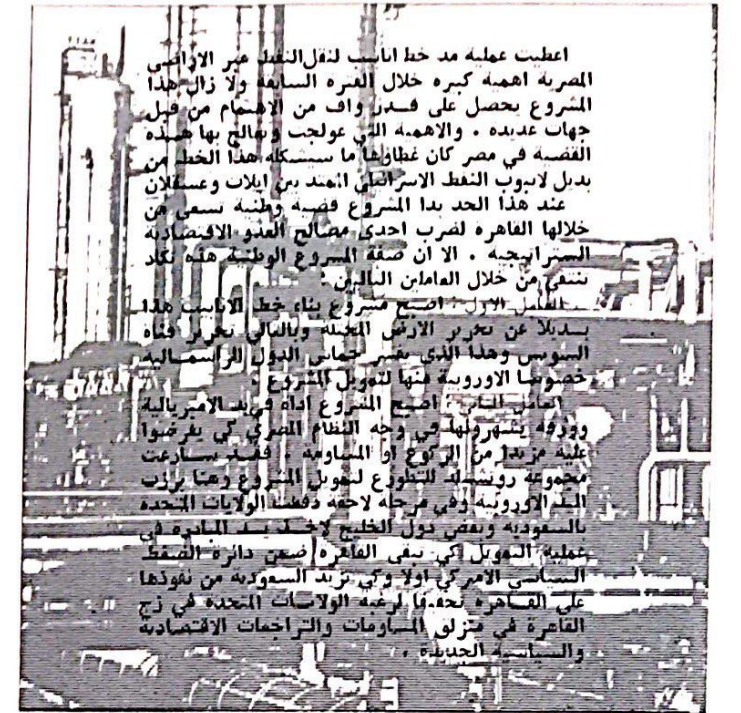 اعطيت عملية مد خط انابيب لنقل النفط عبر الاراضي
المصرية اهمية كبيرة خلال الفترة السابقة ولا زال هذا
المشروع يحصل على قدر واف من الاهتمام من قبل
جهات عديدة . والاهمية التي عولجت ويعالج بها هذه
القضية في مصر كان غطاؤها ما سيشكله هذا الخط من
بديل لانبوب النفط الاسرائيلي الممتد بين ايلات وعسقلان
عند هذا الحد بدا المشروع قضية وطنية تسعى من
خلالها القاهرة لضرب احدى مصالح العدو الاقتصادية
الستراتيجية . الا ان صفة المشروع الوطنية هذه تكاد
تنتفي من خلال العاملين التاليين :
العامل الاول : اصبح مشروع بناء خط الانابيب هذا
بديلا عن تحرير الارض المحتلة وبالتالي تحرير قناة
السويس وهذا الذي يفسر حماس الدول الراسمالية
خصوصا الاوروبية منها لتمويل المشروع .
العامل الثاني : اصبح المشروع اداة في يد الامبريالية
وورقة يشهرونها في وجه النظام المصري كي يفرضوا
عليه مزيدا من الركوع او المساومة . فقد سارعت
مجموعة روتشيلد للتطوع لتمويل المشروع وهنا برزت
اليد الاوروبية وفي مرحلة لاحقة دفعت الولايات المتحدة
بالسعودية وبعض دول الخليج المبادرة في
عملية التمويل كي تبقى القاهرة ضمن دائرة الضغط
السياسي الاميركي اولا وكي تزيد السعودية من نفوذها
على القاهرة تحقيقا لرغبة الولايات المتحدة في زج
القاهرة في منزلق المساومات والتراجعات الاقتصادية
والسياسية الجديدة .